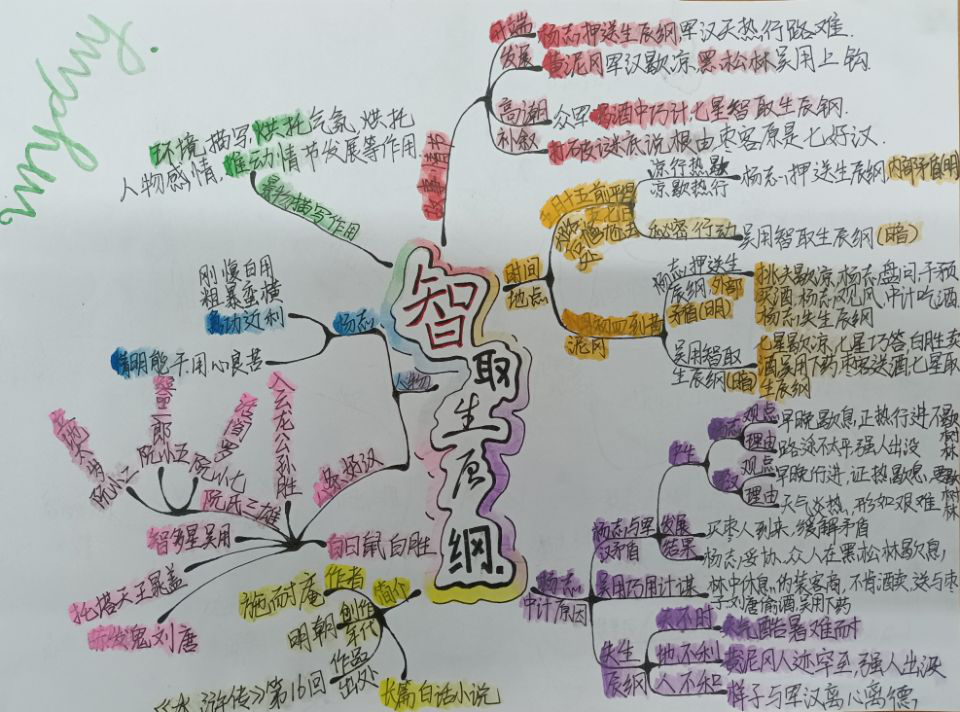 智取生辰纲.
故事情节
开端
杨志押送生辰纲军汉天热行路难.
发展
黄泥冈军汉歇凉,黑松林吴用上钩
高潮
众军 酒中巧计,七星智取生辰钢.
补叙
说根由枣客原是七好汉.
景物描写作用
环境描写,烘托气氛,烘托
人物感情,推动情节发展等作用.
时间
地点
凉行热歇
凉歇热行
杨志押送生辰纲
内部矛盾(明)
秘密行动
吴用智取生辰纲(暗)
泥冈
杨志押送生
辰纲,外部
矛盾(明)
挑夫歇凉,杨志盘问,干预
买酒,杨志见风,中计吃酒
杨志失生辰纲
吴用智取
生辰纲(暗)
七星歇凉,七星巧答,白胜卖
酒,吴用下药枣客送酒,七星取
生辰纲
人物
杨志
刚愎自用
粗暴蛮横
急功近利
精明能干.用心良苦
八条好汉
入云龙公孙胜
阮氏三雄
阮小二
阮小五
阮小七
智多星吴用
托塔天王晁盖
赤发鬼刘唐
白日鼠白胜
简介
作者
施耐庵
创作
年代
明朝
作品
出处
《水浒传》第16回
长篇白话小说
杨志
中计原因
杨志与军
汉矛盾
产生
杨志
观点
早晚歇息,正热行进,不歇
树林
理由
路途不太平,强人出没
军汉
观点
早晚行进,证热歇息,要歇
树林
理由
天气炎热,形如艰难
发展
买枣人到来,缓解矛盾
结果
杨志妥协,众人在黑松林歇息,
吴用巧用计谋
林中休息,伪装客商,不肯酒卖,送与枣
子刘唐偷酒,吴用下药
失生
辰纲
天不时
天气酷暑难耐
地不利
黄泥冈人迹罕至,强人出没
人不和
样子与军汉离心离德,